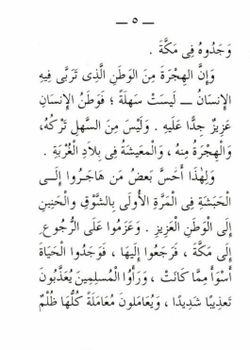 — ٥ —
وَجَدُوهُ فِى مَكَّةَ .
وَإِنَّ الهِجْرَةَ مِنَ الوَطَنِ الَّذِى تَرَبَّى فِيهِ
الإِنسَانُ — لَيسَتْ سَهلَةً ؛ فَوَطَنُ الإِنسَانِ
عَزِيزٌ جِدًّا عَلَيهِ . وَلَيسَ مِنَ السَّهلِ تَرْكُهُ،
وَالهِجْرَةُ مِنهُ، وَالمَعِيشَةُ فِى بِلاَدِ الغُرْبَةِ .
وَلِهٰذَا أَحَسَّ بَعضُ مَن هَاجَرُوا إِلَـى
الحَبَشَةِ فِى المَرَّةِ الأُولَى بِالشَّوْقِ وَالحَنِينِ
إِلَى الوَطَنِ العَزِيزِ . وَعَزَمُوا عَلَى الرُّجُوعِ
إِلَى مَكَّةَ ، فَرَجَعُوا إِلَيهَا ، فَوَجَدُوا الحَيَاةَ
أَسْوَأَ مِمَّا كَانَتْ ، وَرَأَوُا المُسلِمِينَ يُعَذَّبُونَ
تَعذِيبًا شَدِيدًا ، وَيُعَامَلُونَ مُعَامَلَةً كُلُّهَا ظُلْمٌ